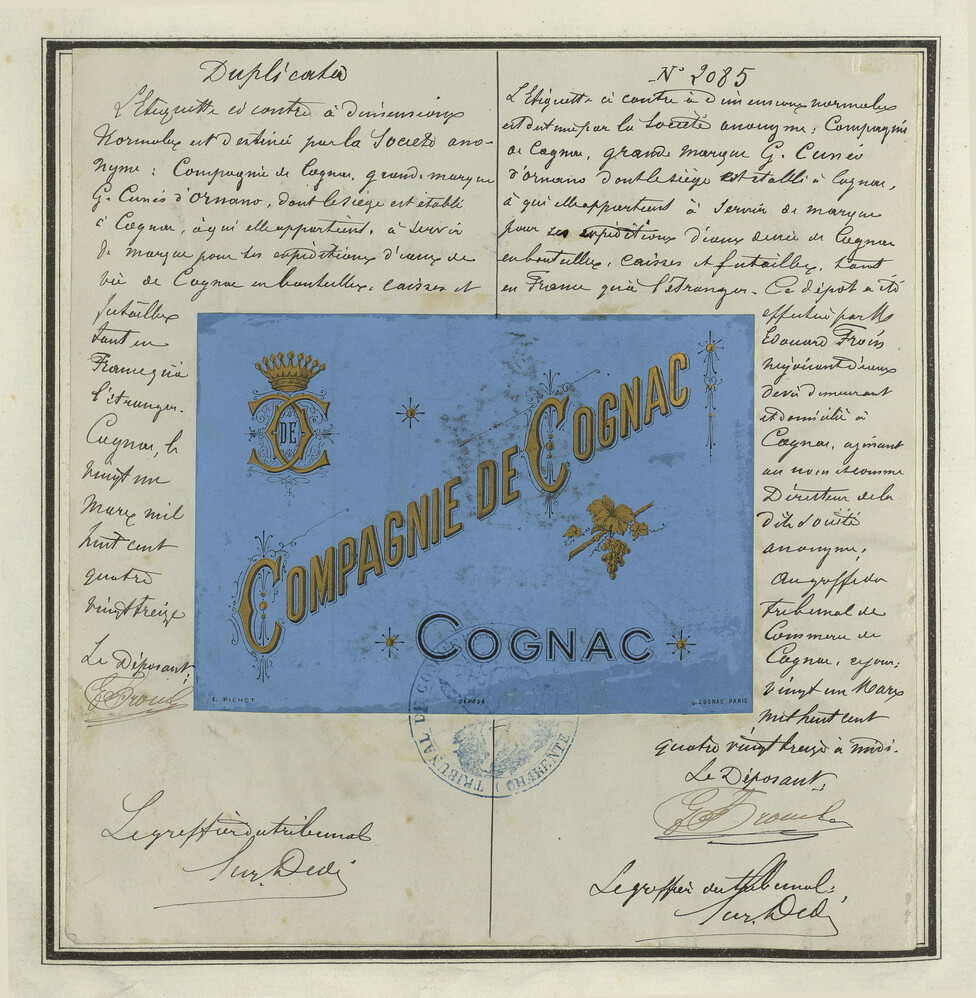 Duplicata
L'Etiquette ci contre à dimensions
Normales est destinée par la Société ano-
nyme : Compagnie de Cognac, grande marque
G. Cunéo d'Ornano, dont le siège est établi
à Cognac, à qui elle appartient, à servir
de marque pour ses expéditions d'eaux de
vie de Cognac en bouteilles, caisses et
futailles
tant en
France qu'à
l'étranger.
Cognac, le
vingt un
Mars mil
huit cent
quatre
vingt treize
Le Déposant,
Le greffier du tribunal
N° 2085
L'Etiquette ci contre à dimensions normales
est destinée par la Société anonyme, Compagnie
de Cognac, grande marque G. Cunéo
d'Ornano dont le siège est établi à Cognac,
à qui elle appartient à servir de marque
pour ses expéditions d'eaux de vie de Cognac
en bouteilles, caisses et futailles, tant
en France qu'à l'étranger. Ce dépôt a été
effectué par M
Edouard
négociant d'eaux
de vie demeurant
et domicilié à
Cognac, agissant
au nom et comme
Directeur de la
dite Société
anonyme,
Au greffe du
tribunal de
Commerce de
Cognac, ce jour,
vingt un Mars
mil huit cent
quatre vingt treize à midi.
Le Déposant,
Le greffier du tribunal,
C DE C
COMPAGNIE DE COGNAC
COGNAC
E. PICHOT
DÉPOSÉ
COGNAC. PARIS
TRIBUNAL DE CO
(CHARENTE)